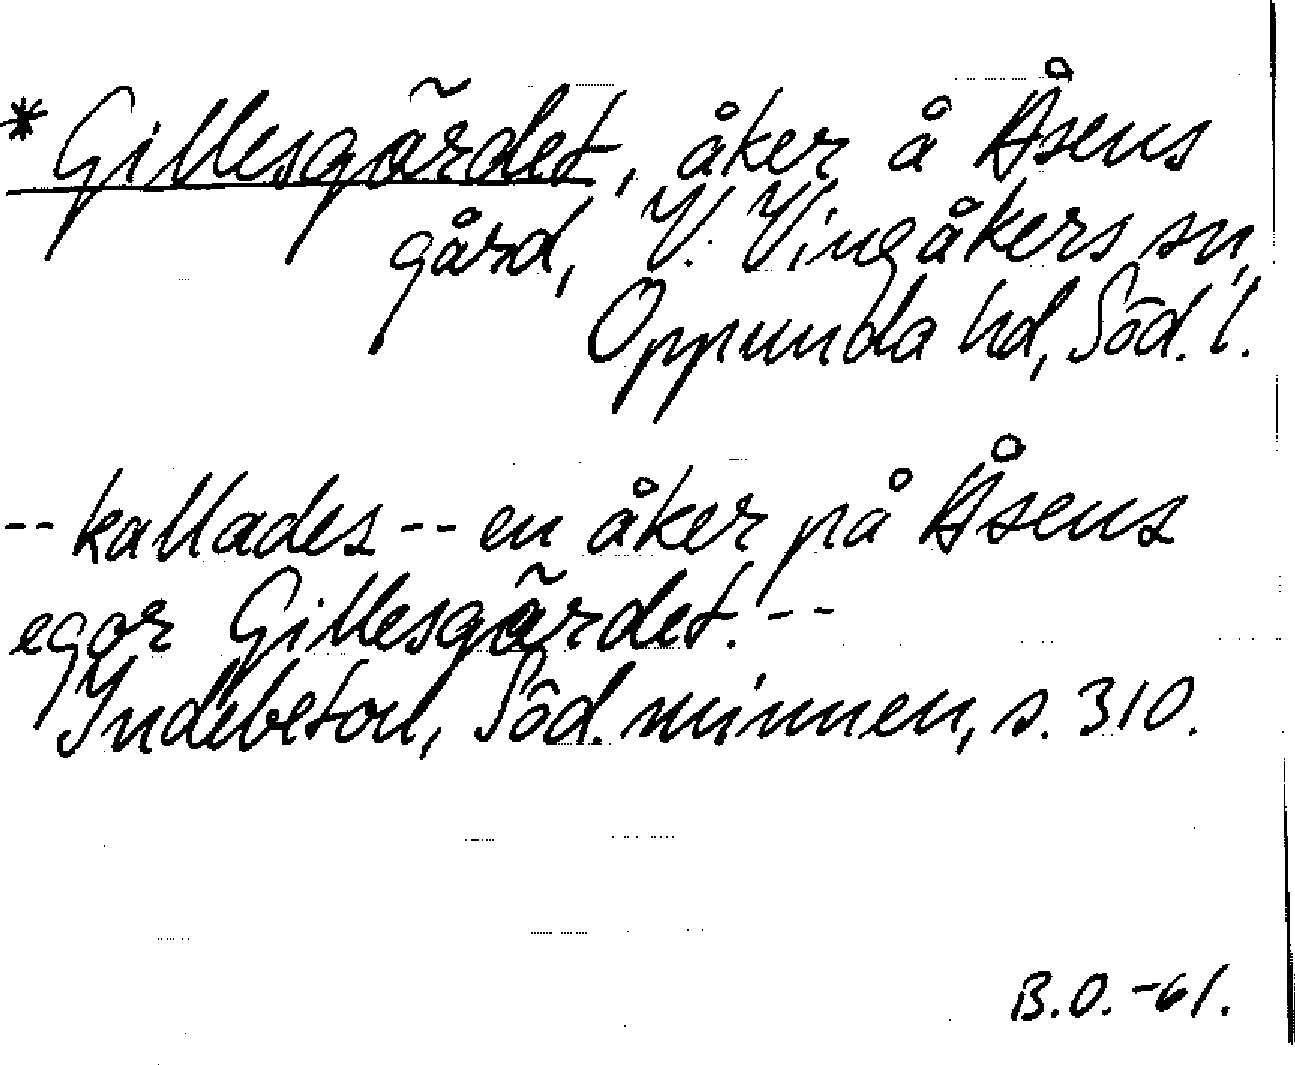 * Gillesgärdet, åker å Åsens
gård, V. Vingåkers sn,
Oppunda hd, Söd. l.
-- kallades -- en åker på Åsens
egor Gillesgärdet. --
Indebetou, Söd. minnen, s. 310.
B.O. -61.